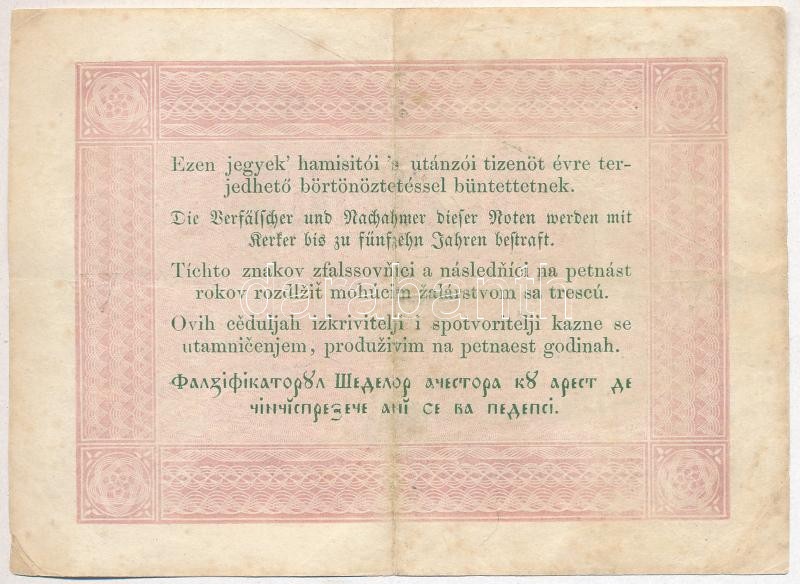 Ezen jegyek' hamisitói 's utánzói tizenöt évre ter-
jedhető börtönöztetéssel büntettetnek.
Die Verfälscher und Nachahmer dieser Noten werden mit
Kerker bis zu fünfzehn Jahren bestraft.
Tíchto znakov zfalssovňici a následňíci na petnást
rokov rozdlžiť mohúcim žalárstvom sa trescú.
Ovih cěduljah izkrivitelji i spotvoritelji kazne se
utamničenjem, produživim na petnaest godinah.
Фалꙁіфікаторꙋл Шеделор ачестора кꙋ арест де
чінчіспреꙁече анĭ се ва педепсі.
darabanth